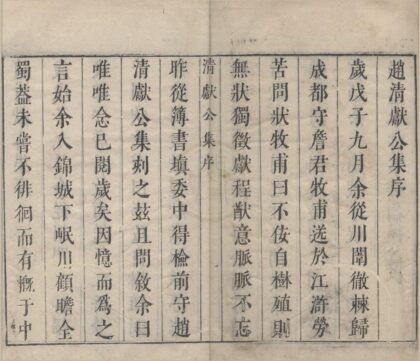 趙清獻公集序
歲戊子九月余從川闈徹棘歸
成都守詹君牧甫送於江滸勞
苦問狀牧甫曰不佞自樹殖則
無狀獨徵獻程猷意脈脈不忘
清獻公集序
昨從簿書填委中得檢前守趙
清獻公集刻之玆且問敘余曰
唯唯念已閱歲矣因憶而為之
言始余入錦城下岷川顧瞻全
蜀葢未嘗不徘徊而有概于中